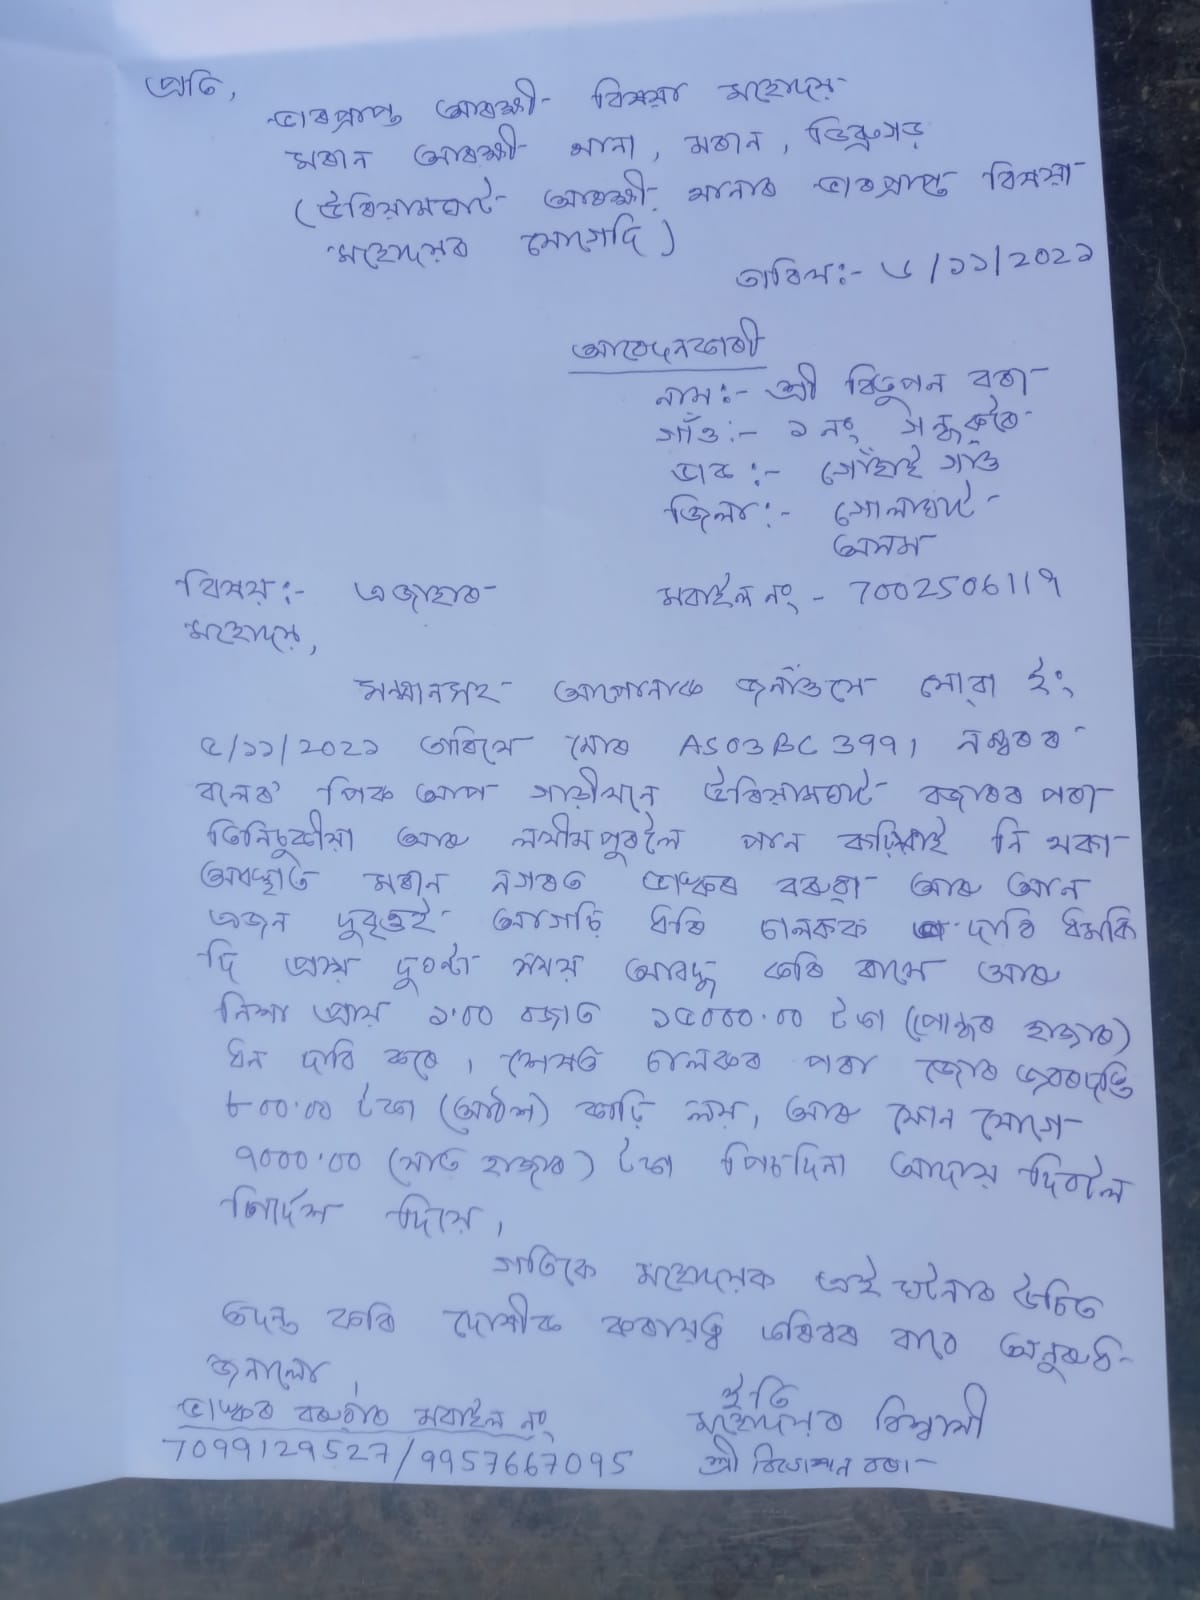 প্ৰতি,
ভাৰপ্ৰাপ্ত আৰক্ষী বিষয়া মহোদয়
মৰাণ আৰক্ষী থানা, মৰাণ, ডিব্ৰুগড়
(উৰিয়ামঘাট আৰক্ষী থানাৰ ভাৰপ্ৰাপ্ত বিষয়া
মহোদয়ৰ যোগেদি)
তাৰিখ:- ৬/১১/2021
আবেদনকাৰী
নাম:- শ্ৰী বিতুপন বৰা
গাঁও:- ১ নং
ডাক:- গোঁহাই গাঁও
জিলা:- গোলাঘাট
অসম
বিষয়:- এজাহাৰ
মবাইল নং - 700250611৭
মহোদয়,
সন্মানসহ আপোনাক জনাওঁযে যোৱা ইং
৫/১১/2021 তাৰিখে মোৰ AS03BC 3991 নম্বৰৰ
বলেৰ' পিক আপ গাড়ীখনে উৰিয়ামঘাট বজাৰৰ পৰা
তিনিচুকীয়া আৰু লখীমপুৰলৈ পান কঢ়িয়াই নি থকা
অৱস্থাত মৰাণ নগৰত ভাস্কৰ বৰুৱা আৰু আন
এজন দুৰ্বৃত্তই আগচি ধৰি চালকক দাবি ধমকি
দি প্ৰায় দুঘণ্টা সময় আবদ্ধ কৰি ৰাখে আৰু
নিশা প্ৰায় ১.00 বজাত ১৫000.00 টকা (পোন্ধৰ হাজাৰ)
ধন দাবি কৰে, শেষত চালকৰ পৰা জোৰ জবৰদস্তি
৮00.00 টকা (আঠশ) কাঢ়ি লয়, আৰু ফোন যোগে
৭000.00 (সাত হাজাৰ) টকা পিচদিনা আদায় দিবলৈ
নিৰ্দেশ দিয়ে,
গতিকে মহোদয়ক এই ঘটনাৰ উচিত
তদন্ত কৰি দোষীক কৰায়ত্ব কৰিবৰ বাবে অনুৰুধ
জনালো,
ভাস্কৰ বৰুৱাৰ মবাইল নং
7099129527/9957667095
ইতি
মহোদয়ৰ বিশ্বাসী
শ্ৰী বৰা